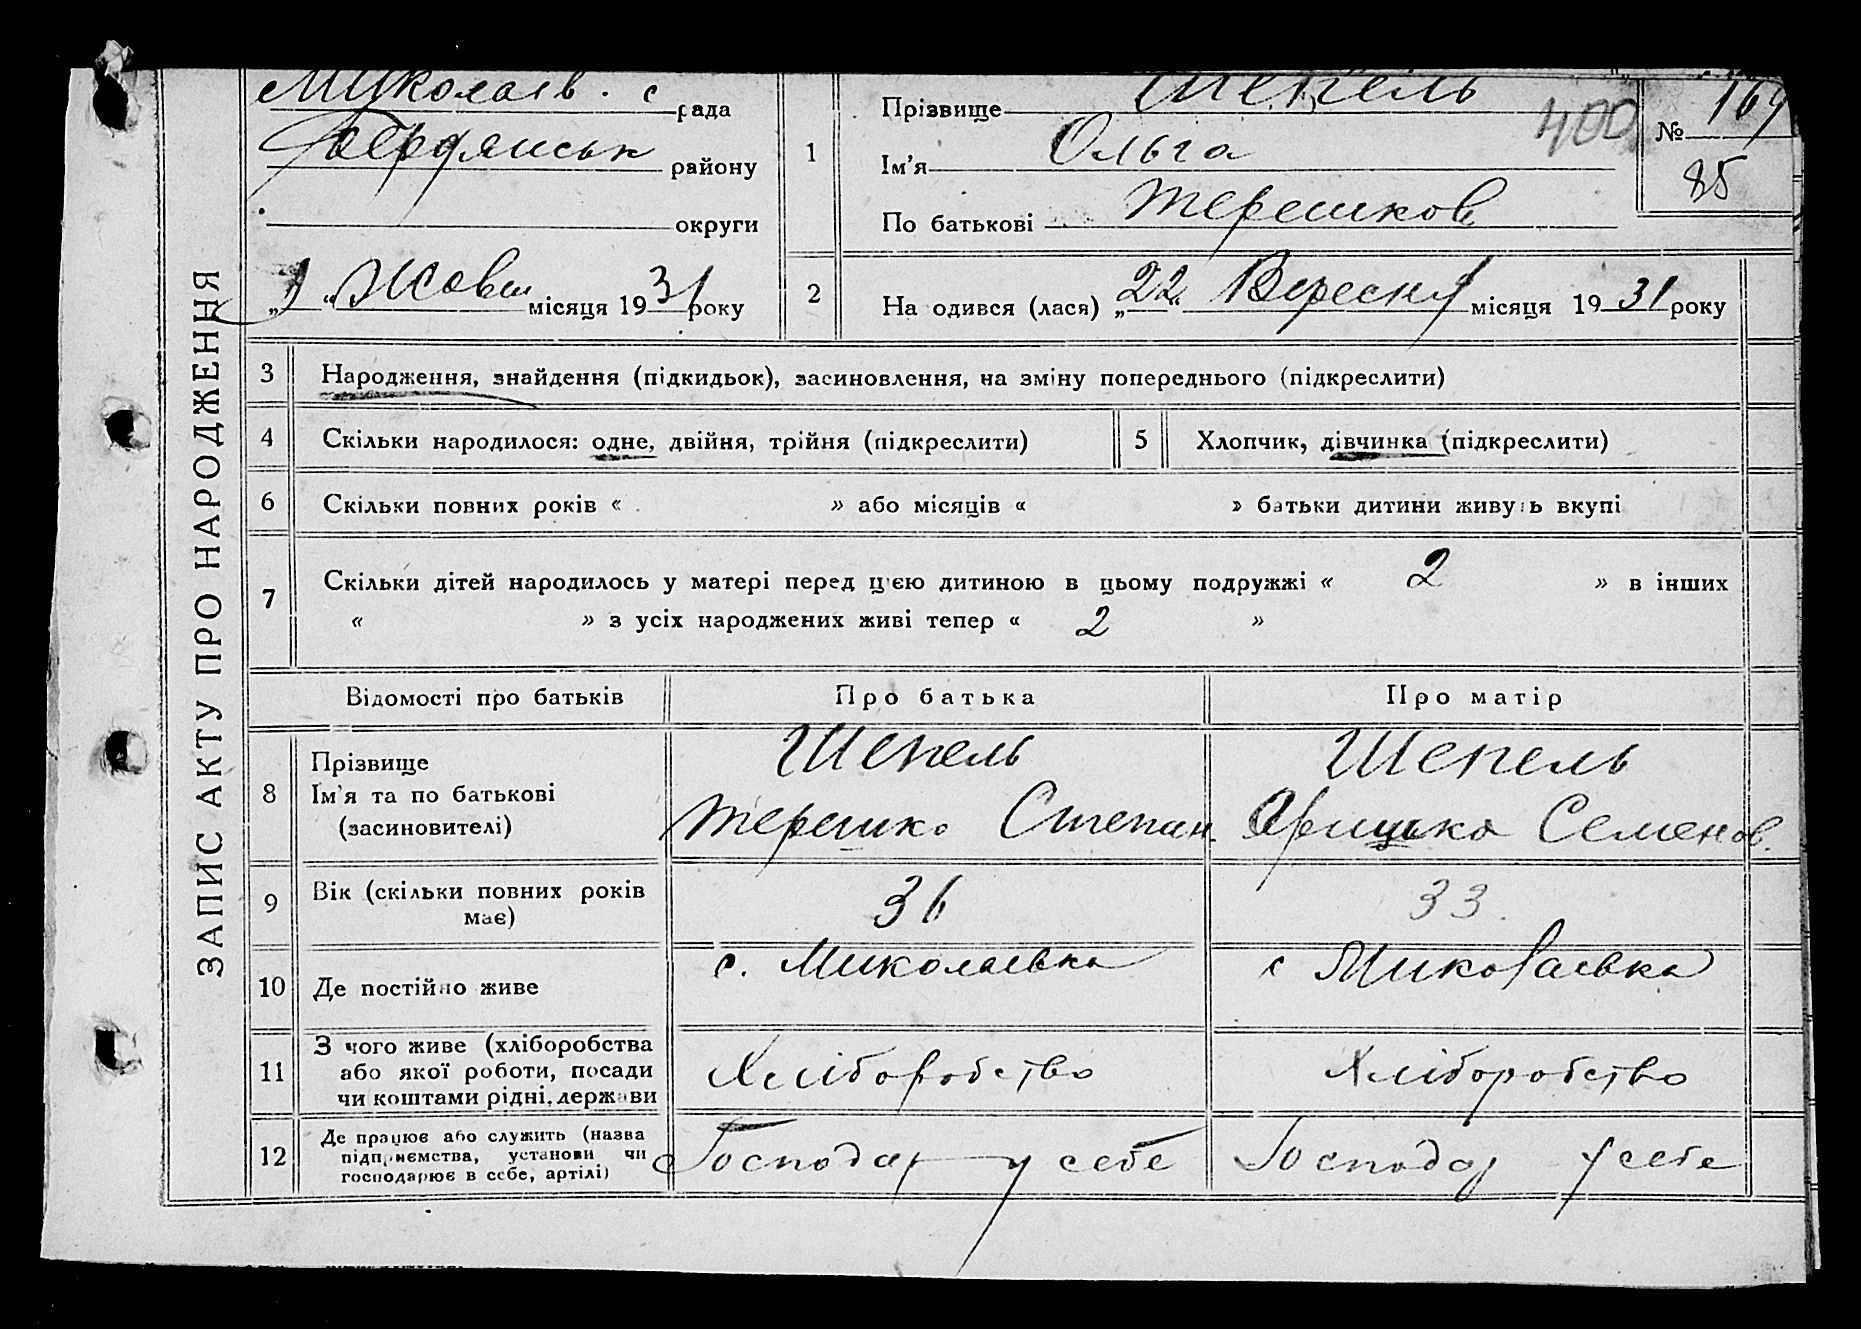 ЗАПИС АКТУ ПРО НАРОДЖЕННЯ
Миколаїв. с рада
Бердянськ району
округи
„1“ Жовтн місяця 1931 року
1
Прізвище Шепель
Ім'я Ольга
По батькові Терешков
400
№ 164
85
2
На одився (лася) „22“ Вересня місяця 1931 року
3 Народження, знайдення (підкидьок), засиновлення, на зміну попереднього (підкреслити)
4 Скільки народилося: одне, двійня, трійня (підкреслити) 5 Хлопчик, дівчинка (підкреслити)
6 Скільки повних років « » або місяців « » батьки дитини живуть вкупі
7 Скільки дітей народилось у матері перед цією дитиною в цьому подружжі « 2 » в інших
« » з усіх народжених живі тепер « 2 »
Відомості про батьків Про батька Про матір
8 Прізвище
Ім'я та по батькові
(засиновителі)
Шепель
Терешко Степан.
Шепель
Оришка Семенов.
9 Вік (скільки повних років
має)
36
33.
10 Де постійно живе
с. Миколаївка
с Миколаївка
11 З чого живе (хліборобства
або якої роботи, посади
чи коштами рідні, держави
Хліборобство
Хліборобство
12 Де працює або служить (назва
підприємства, установи чи
господарює в себе, артілі)
Господар у себе
Господар у себе